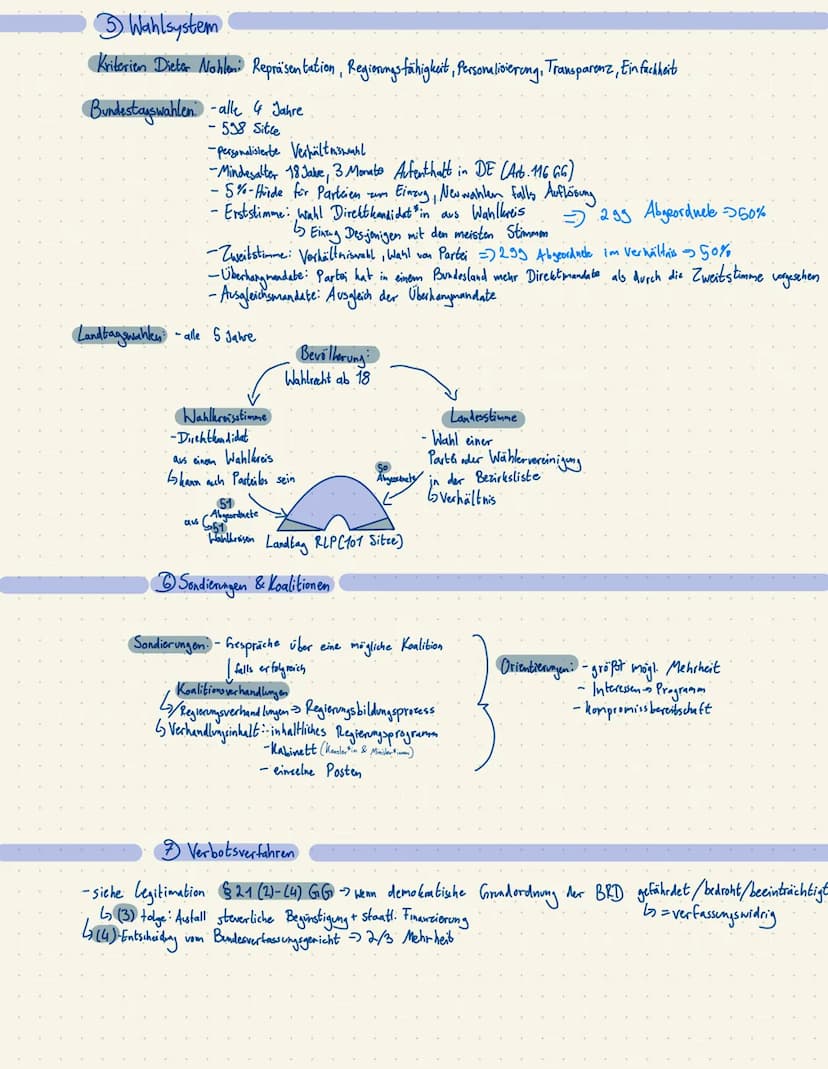 5) Wahlsystem
Kriterien Dieter Nohlen: Repräsentation, Regierungsfähigkeit, Personalisierung, Transparenz, Einfachheit
Bundestagswahlen: - alle 4 Jahre
- 598 Sitze
- personalisierte Verhältniswahl
- Mindesalter 18 Jahre, 3 Monate Aufenthalt in DE (Art. 116 GG)
- 5%-Hürde für Parteien zum Einzug, Neuwahlen falls Auflösung
- Erststimme: Wahl Direktkandidat*in aus Wahlkreis => 299 Abgeordnete => 50%
↳ Einzug Desjenigen mit den meisten Stimmen
- Zweitstimme: Verhältniswahl, Wahl von Partei => 299 Abgeordnete im Verhältnis => 50%
- Überhangmandate: Partei hat in einem Bundesland mehr Direktmandate als durch die Zweitstimme vorgesehen
- Ausgleichsmandate: Ausgleich der Überhangmandate
Landtagswahlen: - alle 5 Jahre
Bevölkerung:
Wahlrecht ab 18
Wahlkreisstimme
- Direktkandidat
aus einem Wahlkreis
↳ kann auch Parteilos sein
51
Abgeordnete
aus ↳ 51
Wahlkreisen
Landesstimme
- Wahl einer
Partei oder Wählervereinigung
in der Bezirksliste
↳ Verhältnis
50
Abgeordnete
Landtag RLP (101 Sitze)
6) Sondierungen & Koalitionen
Sondierungen: - Gespräche über eine mögliche Koalition
↓ falls erfolgreich
Koalitionsverhandlungen
↳ /Regierungsverhandlungen => Regierungsbildungsprozess
↳ Verhandlungsinhalt: - inhaltliches Regierungsprogramm
- Kabinett (Kanzler*in & Minister*innen)
- einzelne Posten
Orientierungen: - größt mögl. Mehrheit
- Interessen → Programm
- kompromissbereitschaft
7) Verbotsverfahren
- siehe Legitimation § 21 (2)-(4) GG → wenn demokratische Grundordnung der BRD gefährdet/bedroht/beeinträchtigt
↳ = verfassungswidrig
↳ (3) Folge: Ausfall steuerliche Begünstigung + staatl. Finanzierung
↳ (4) - Entscheidung vom Bundesverfassungsgericht => 2/3 Mehrheit